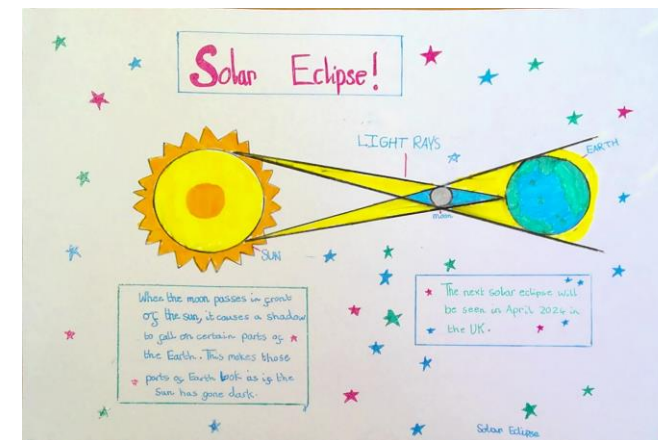 Solar Eclipse!
LIGHT RAYS
EARTH
moon
SUN
When the moon passes in front
of the sun, it causes a shadow
to fall on certain parts of
the Earth. This makes those
parts of Earth look as if the
Sun has gone dark.
The next solar eclipse will
be seen in April 2024 in
the UK.
Solar Eclipse